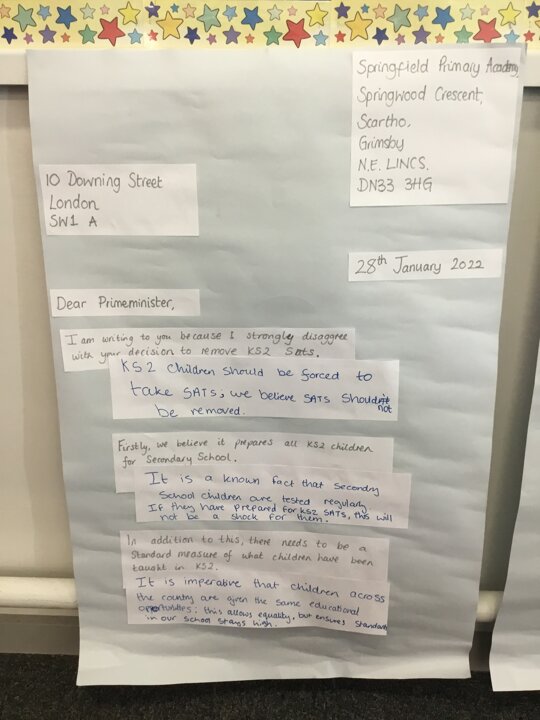 Springfield Primary Academy,
Springwood Crescent,
Scartho,
Grimsby
N.E. LINCS.
DN33 3HG
10 Downing Street
London
SW1 A
28th January 2022
Dear Primeminister,
I am writing to you because I strongly disagree
with your decision to remove KS2 Sats.
KS2 Children should be forced to
take SATS; we believe SATS should not
be removed.
Firstly, we believe it prepares all KS2 children
for Secondary School.
It is a known fact that Secondry
School children are tested regularly.
If they have prepared for KS2 SATS, this will
not be a shock for them.
In addition to this, there needs to be a
Standard measure of what children have been
taught in KS2.
It is imperative that children across
the country are given the same educational
; this allows equality, but ensures Standards
in our School stays high.